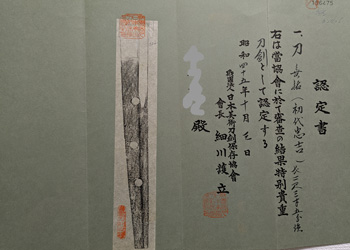 認定書
一、刀 無銘(初代忠吉)長二尺三寸五分強
右は當協會に於て審査の結果特別貴重
刀劍として認定する
昭和四十五年十月 日
財團法人日本美術刀劍保存協會
會長 細川護立
殿